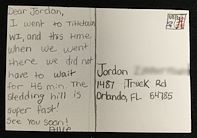 Dear Jordan,
I went to
WI, and this time
when we went
there we did not
have to wait
for 45 min. The
sledding hill is
super fast!
See you soon!
Allie
Jordan
1487 Truck Rd
Orlando, FL 64785